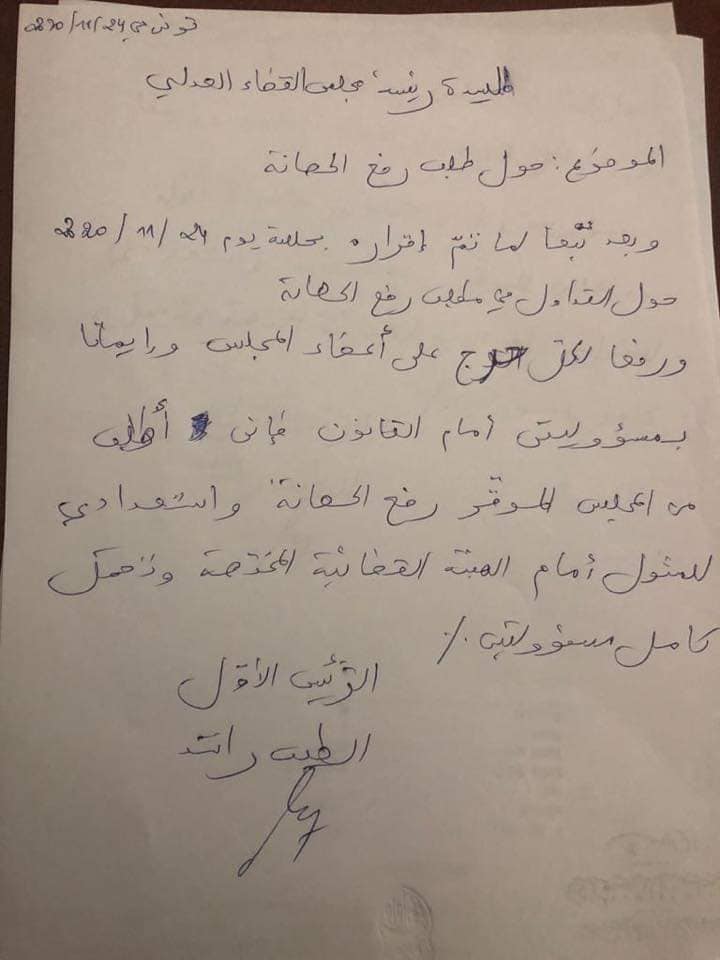 تونس في 24/11/2020
السيدة رئيسة مجلس القضاء العدلي
الموضوع: حول طلب رفع الحصانة
وبعد تبعا لما تمّ إقراره بجلسة يوم 24/11/2020
حول التداول في مطلب رفع الحصانة
ورفعا لكل حرج على أعضاء المجلس وإيمانا
بمسؤوليتي أمام القانون فإني أطلب
من المجلس الموقّر رفع الحصانة واستعدادي
للمثول أمام الهيئة القضائية المختصة وتحمل
كامل مسؤوليتي ./.
الرّئيس الأوّل
الطيب راشد